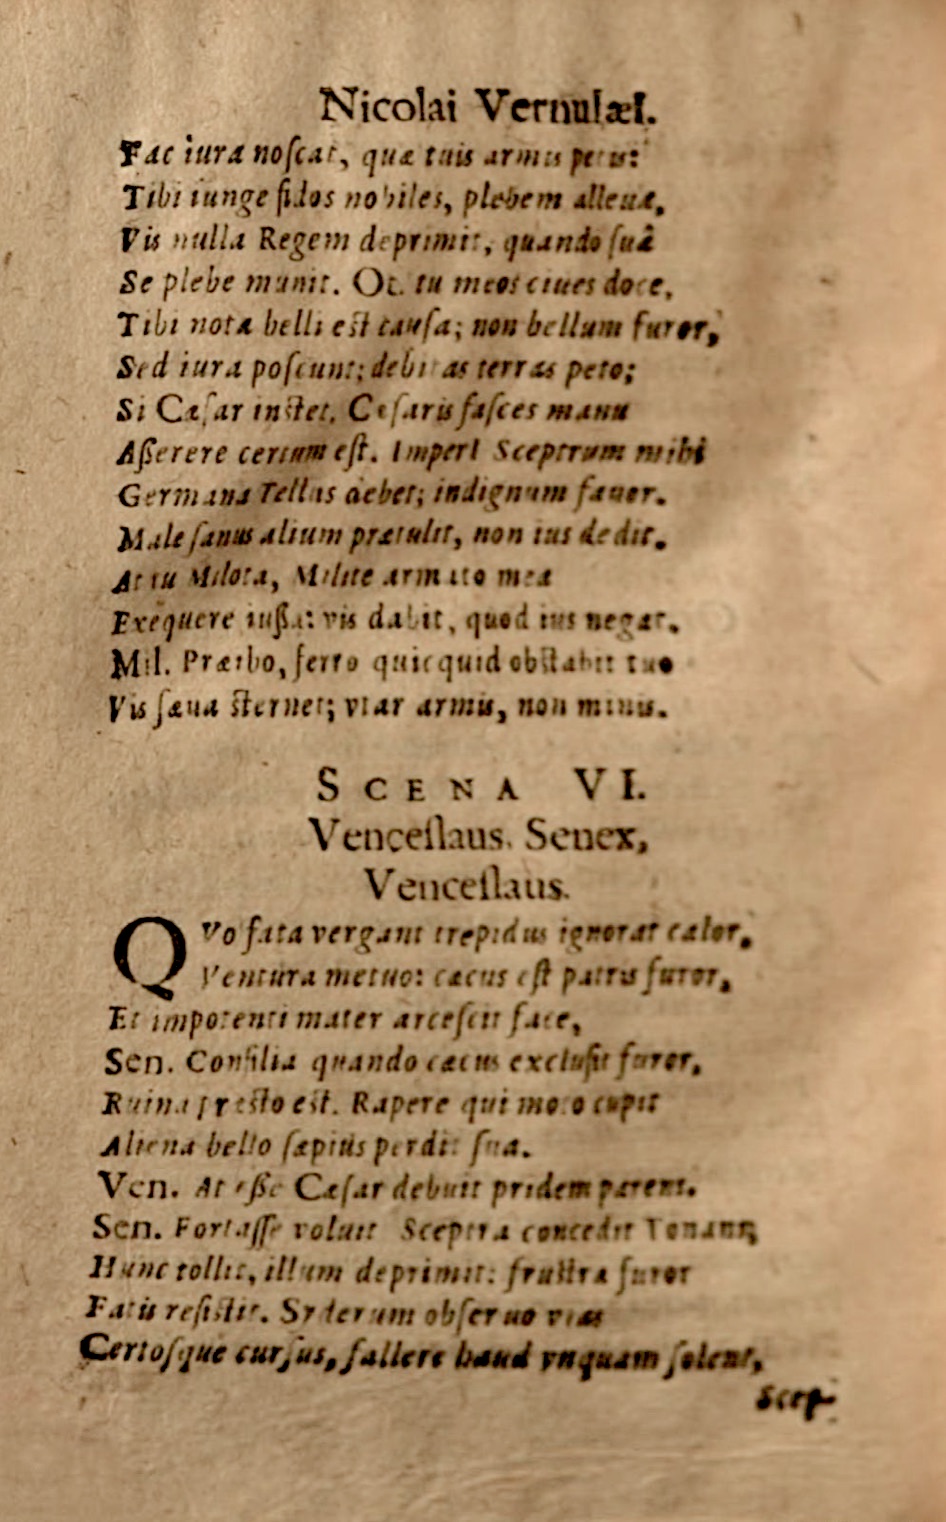 Nicolai Vernulæi.
Fac iura noscat, quæ tuis armis petis:
Tibi iunge fidos nobiles, plebem alleua,
Vis nulla Regem deprimit, quando suâ
Se plebe munit. Oc. tu meos ciues doce,
Tibi nota belli est causa; non bellum furor,
Sed iura poscunt; debitas terras peto;
Si Cæsar instet, Cæsaris fasces manu
Aßerere certum est. Imperi Sceptrum mihi
Germana Tellus debet; indignum fauor.
Malesanus alium prætulit, non ius dedit.
At tu Milota, Milite armato mea
Exequere iußa: vis dabit, quod ius negat.
Mil. Præibo, ferro quicquid obstabit tuo
Vis sæua sternet; vtar armis, non minis.
SCENA VI.
Venceslaus. Senex,
Venceslaus.
QVo fata vergant trepidus ignorat calor,
Ventura metuo: cæcus est patris furor,
Et impotenti mater arcescit face,
Sen. Consilia quando cæcus exclusit furor,
Ruina præsto est. Rapere qui modo cupit
Aliena bello sæpius perdit sua.
Ven. At eße Cæsar debuit pridem parens.
Sen. Fortasse voluit Sceptra concedit Tonans,
Hunc tollit, illum deprimit: frustra furor
Fatis resistit. Syderum obseruo vias
Certosque cursus, fallere haud vnquam solent,
Scep-